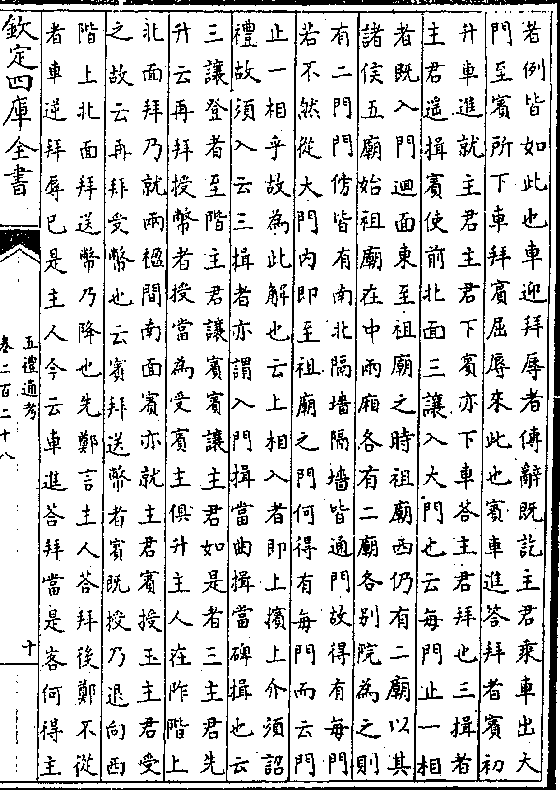 者例皆如此也車迎拜辱者傳辭既訖主君乘車出大
門至賓所下車拜賓屈辱來此也賓車進答拜者賓初
升車進就主君主君下賓亦下車答主君拜也三揖者
主君遥揖賓使前北面三讓入大門也云每門止一相
者既入門迴面東至祖廟之時祖廟西仍有二廟以其
諸侯五廟始祖廟在中兩廂各有二廟各别院為之則
有二門門傍皆有南北隔墻隔墻皆通門故得有每門
若不然從大門内即至祖廟之門何得有每門而云門
止一相乎故為此解也云上相入者即上擯上介須詔
禮故須入云三揖者亦謂入門揖當曲揖當碑揖也云
三讓登者至階主君讓賓賓讓主君如是者三主君先
升云再拜授幣者授當為受賓主俱升主人在阼階上
北面拜乃就兩楹間南面賓亦就主君賓授玉主君受
之故云再拜受幣也云賓拜送幣者賓既授乃退向西
階上北面拜送幣乃降也先鄭言主人答拜後鄭不從
者車逆拜辱已是主人今云車進答拜當是客何得主
欽定四庫全書
五禮通考
卷二百二十八
十